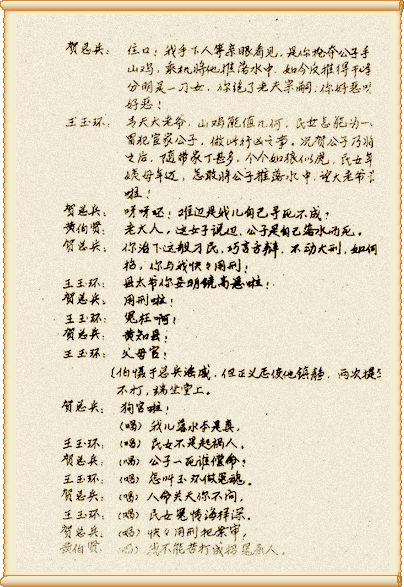 贺总兵: 住口!我手下人等亲眼看见,是你抢夺公子手
山鸡,乘机将他推落水中,如今反推得干净
分明是一刁女,你绝了老夫宗嗣,你好恶
好恶!
王玉环: 青天大老爷,山鸡能值几何,民女怎能为一
冒犯官家公子,做此行凶之事。况贺公子乃将
之后,随带家丁甚多,个个如狼似虎,民女年
娭母年迈,怎敢将公子推落水中,望大老爷
啦!
贺总兵: 呀呀呸!难道是我儿自己寻死不成?
黄伯贤: 老大人,这女子说道,公子是自己落水而死。
贺总兵: 你治下这般刁民,巧言舌辩,不动大刑,如何
招,你与我快々用刑!
王玉环: 县太爷你要明镜高悬啦!
贺总兵: 用刑啦!
王玉环: 冤枉啊!
贺总兵: 黄知县!
王玉环: 父母官!
(伯慑于总兵淫威,但正义感使他镇静,两次提
不打,端坐堂上。
贺总兵: 狗官啦!
(唱)我儿落水本是真,
王玉环: (唱)民女不是起祸人。
贺总兵: (唱)公子一死谁偿命?
王玉环: (唱)怎叫玉环做冤魂。
贺总兵: (唱)人命关天你不问,
王玉环: (唱)民女冤情海样深。
贺总兵: (唱)快々用刑把案审,
黄伯贤: (唱)我不能苦打成招冤原人。